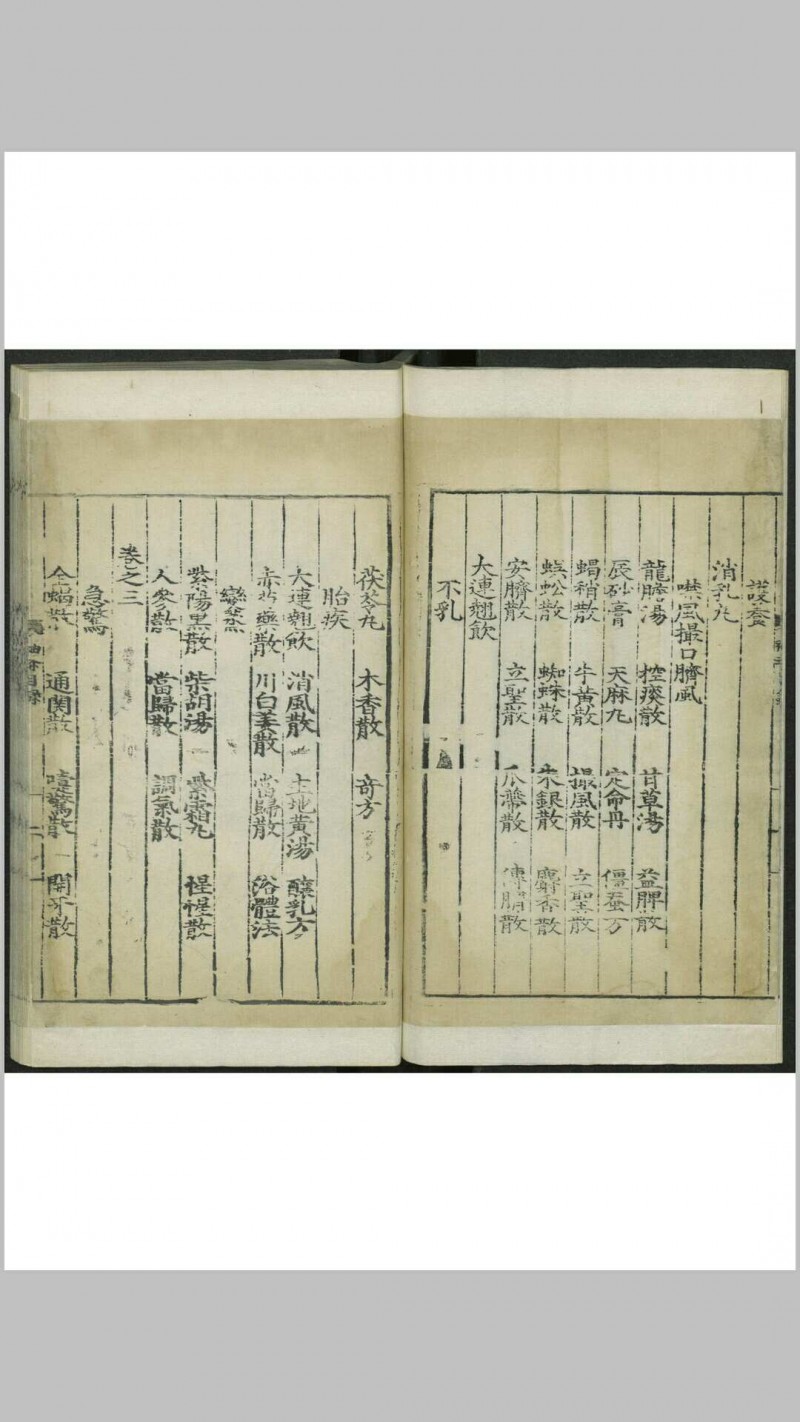 護養
消乳丸
噤風撮口臍風
龍膽湯 控痰散 甘草湯 益脾散
辰砂膏 天麻丸 定命丹 僵蚕方
蝎稍散 牛黃散 撮風散 立聖散
蜈蚣散 蜘蛛散 朱銀散 麝香散
安臍散 立聖散 瓜蒂散
大連翹飲
不乳
茯苓丸 木香散 奇方
胎疾
大連翹飲 消風散 生地黃湯 釀乳方
赤芍藥散 川白姜散 當歸散 浴體法
變蒸
紫陽黑散 柴胡湯 紫霜丸 惺惺散
人參散 當歸散 調氣散
卷之三
急驚
全蝎散 通関散 嚏驚散 開牙散